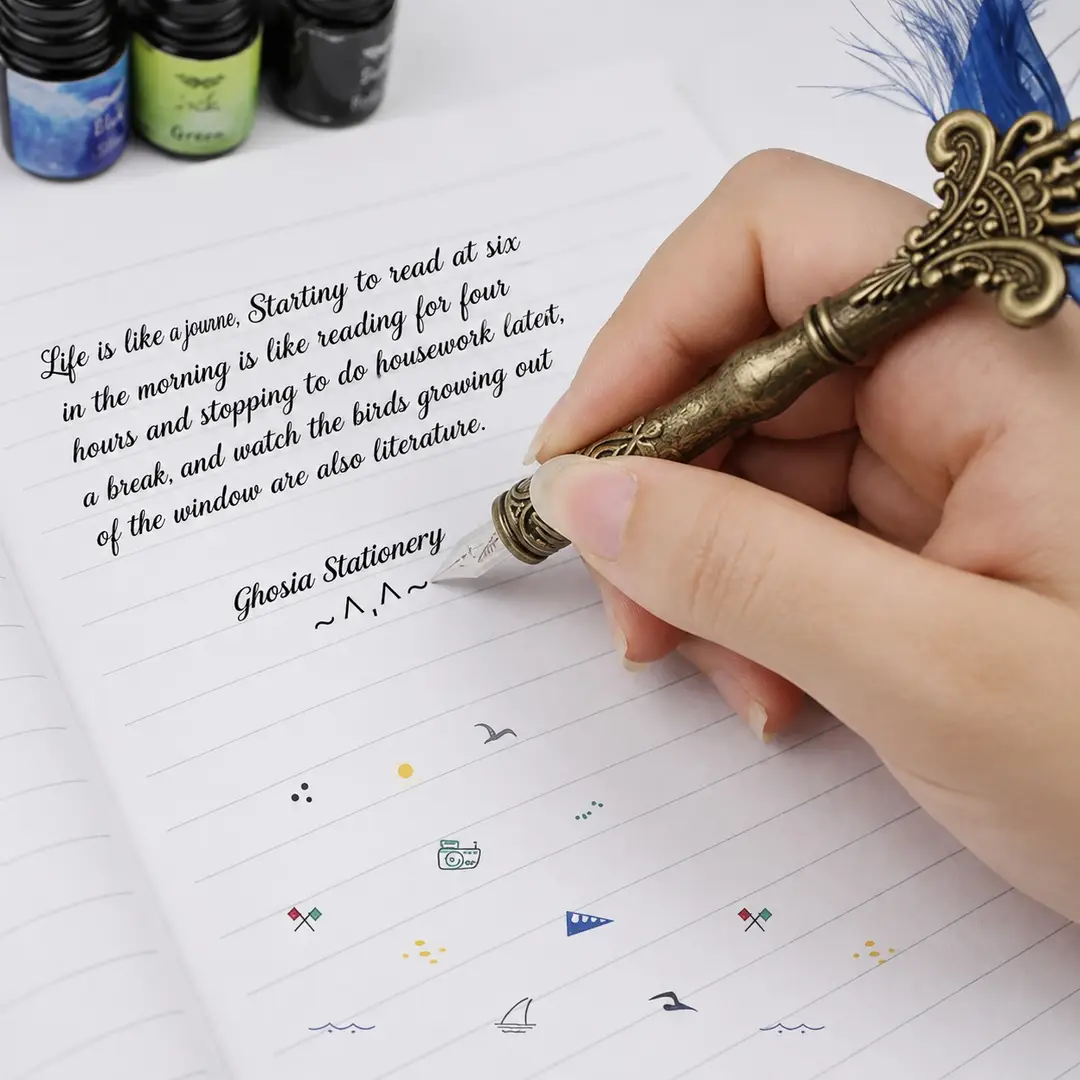 Green
Life is like a journe, Startiny to read at six
in the morning is like reading for four
hours and stopping to do housework latert,
a break, and watch the birds growing out
of the window are also literature.
Ghosia Stationery
~ ʌ , ʌ ~